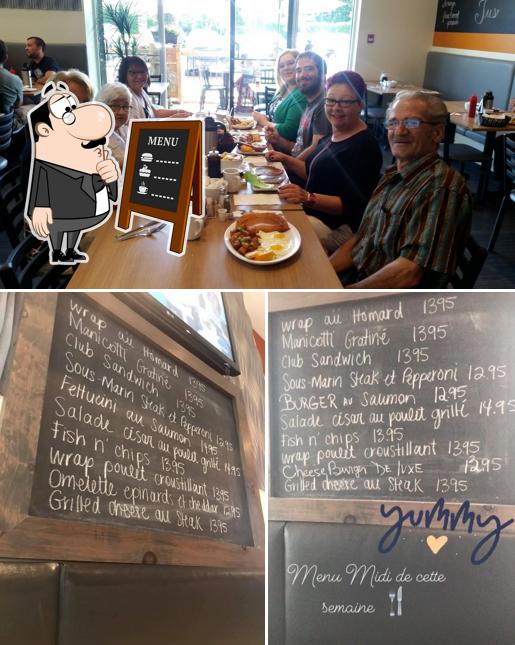 Jus
MENU
wrap au Homard 1395
Manicotti Gratiné 1395
Club Sandwich 1395
Sous-Marin Steak et Pepperoni 12.95
Fettucini au Saumon 14.95
Salade césar au poulet grillé 14.95
Fish n' chips 1395
wrap poulet croustillant 1395
Omelette epinards et cheddar 12.95
Grilled cheese au Steak 1395
wrap au Homard 1395
Manicotti Gratiné 1395
Club Sandwich 1395
Sous-Marin Steak et Pepperoni 12.95
BURGER au Saumon 12.95
Salade césar au poulet grillé 14.95
Fish n' chips 1395
wrap poulet croustillant 1395
Cheese Burger DE LUXE 12.95
Grilled cheese au Steak 1395
yummy
Menu Midi de cette
semaine